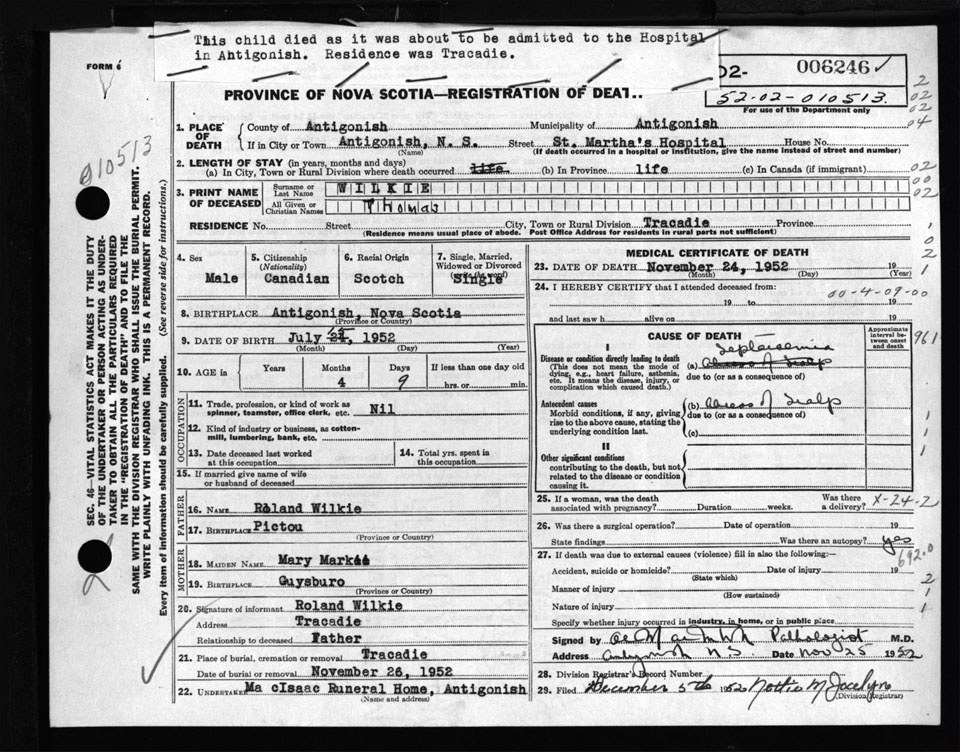 This child died as it was about to be admitted to the Hospital
in Ahtigonish. Residence was Tracadie.
FORM 6
02- 006246
52-02-010513.
For use of the Department only
PROVINCE OF NOVA SCOTIA—REGISTRATION OF DEAT..
2
02
02
04
02
00
02
1
0
2
1
010513
SEC. 46—VITAL STATISTICS ACT MAKES IT THE DUTY
OF THE UNDERTAKER OR PERSON ACTING AS UNDER-
TAKER TO OBTAIN ALL THE PARTICULARS REQUIRED
IN THE "REGISTRATION OF DEATH" AND TO FILE THE
SAME WITH THE DIVISION REGISTRAR WHO SHALL ISSUE THE BURIAL PERMIT.
WRITE PLAINLY WITH UNFADING INK. THIS IS A PERMANENT RECORD.
Every item of information should be carefully supplied. (See reverse side for instructions.)
1. PLACE OF DEATH
County of Antigonish Municipality of Antigonish
If in City or Town Antigonish, N. S. Street St. Martha's Hospital House No.
(Name) (If death occurred in a hospital or institution, give the name instead of street and number)
2. LENGTH OF STAY (in years, months and days)
(a) In City, Town or Rural Division where death occurred life (b) In Province life (c) In Canada (if immigrant)
3. PRINT NAME OF DECEASED
Surname or Last Name WILKIE
All Given or Christian Names Thomas
RESIDENCE No. Street City, Town or Rural Division Tracadie Province
(Residence means usual place of abode. Post Office Address for residents in rural parts not sufficient)
4. Sex 5. Citizenship 6. Racial Origin 7. Single, Married,
(Nationality) Widowed or Divorced
Male Canadian Scotch Single
8. BIRTHPLACE Antigonish, Nova Scotia
(Province or Country)
9. DATE OF BIRTH July 1952
(Month) (Day) (Year)
10. AGE in Years Months Days If less than one day old
4 9 hrs. or min.
OCCUPATION
11. Trade, profession, or kind of work as
spinner, teamster, office clerk, etc. Nil
12. Kind of industry or business, as cotton-
mill, lumbering, bank, etc.
13. Date deceased last worked
at this occupation
14. Total yrs. spent in
this occupation
15. If married give name of wife
or husband of deceased
FATHER
16. NAME Roland Wilkie
17. BIRTHPLACE Pictou
(Province or Country)
MOTHER
18. MAIDEN NAME Mary
19. BIRTHPLACE Guysburo
(Province or Country)
20. Signature of informant Roland Wilkie
Address Tracadie
Relationship to deceased Father
21. Place of burial, cremation or removal Tracadie
Date of burial or removal November 26, 1952
22. UNDERTAKER Ma cIsaac Runeral Home, Antigonish
(Name and address)
MEDICAL CERTIFICATE OF DEATH
23. DATE OF DEATH November 24, 1952 19
(Month) (Day) (Year)
24. I HEREBY CERTIFY that I attended deceased from:
00-4-09-00
19 to 19
and last saw h alive on 19
CAUSE OF DEATH
Approximate interval between onset and death
961
I
Disease or condition directly leading to death
(This does not mean the mode of
dying, e.g., heart failure, asthenia,
etc. It means the disease, injury, or
complication which caused death.)
Septicemia
(a) Abscess of Scalp
due to (or as a consequence of)
Antecedent causes
Morbid conditions, if any, giving
rise to the above cause, stating the
underlying condition last.
(b) Abscess of Scalp
due to (or as a consequence of)
(c)
1
1
1
II
Other significant conditions
contributing to the death, but not
related to the disease or condition
causing it.
25. If a woman, was the death Was there X-24-2
associated with pregnancy? Duration weeks. a delivery?
26. Was there a surgical operation? Date of operation 19
State findings Was there an autopsy? yes
692.0
27. If death was due to external causes (violence) fill in also the following:—
Accident, suicide or homicide? Date of injury 19
(State which)
2
Manner of injury
(How sustained)
1
Nature of injury
1
Specify whether injury occurred in industry, in home, or in public place
Signed by Pathologist M.D.
Address Antigonish N.S. Date Nov 25 1952
28. Division Registrar's Record Number
29. Filed December 5th 1952 Nottie M Jocelyn
(Division Registrar)